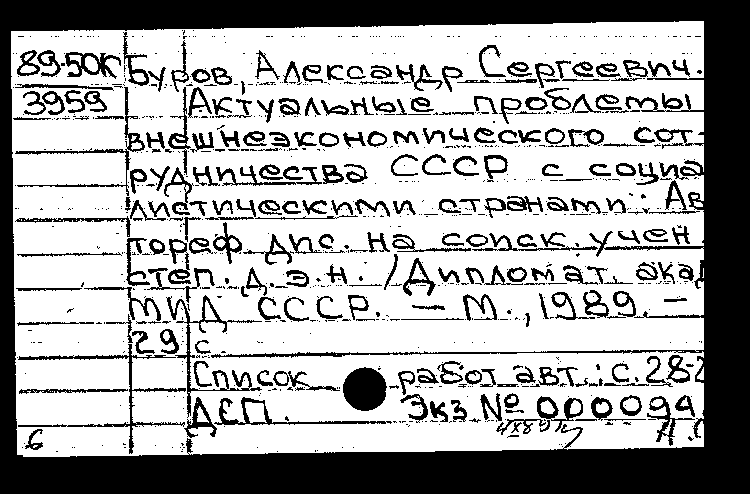 89-50К Буров, Александр Сергеевич.
3959 Актуальные проблемы
внешнеэкономического сот-
рудничества СССР с социа
листическими странами: Ав
тореф. дис. на соиск. учен.
степ. д.э.н. /Дипломат. акад
МИД СССР. — М., 1989. —
29 с.
Список работ авт.: с. 28-2
ДСП. Экз № 000094.
6